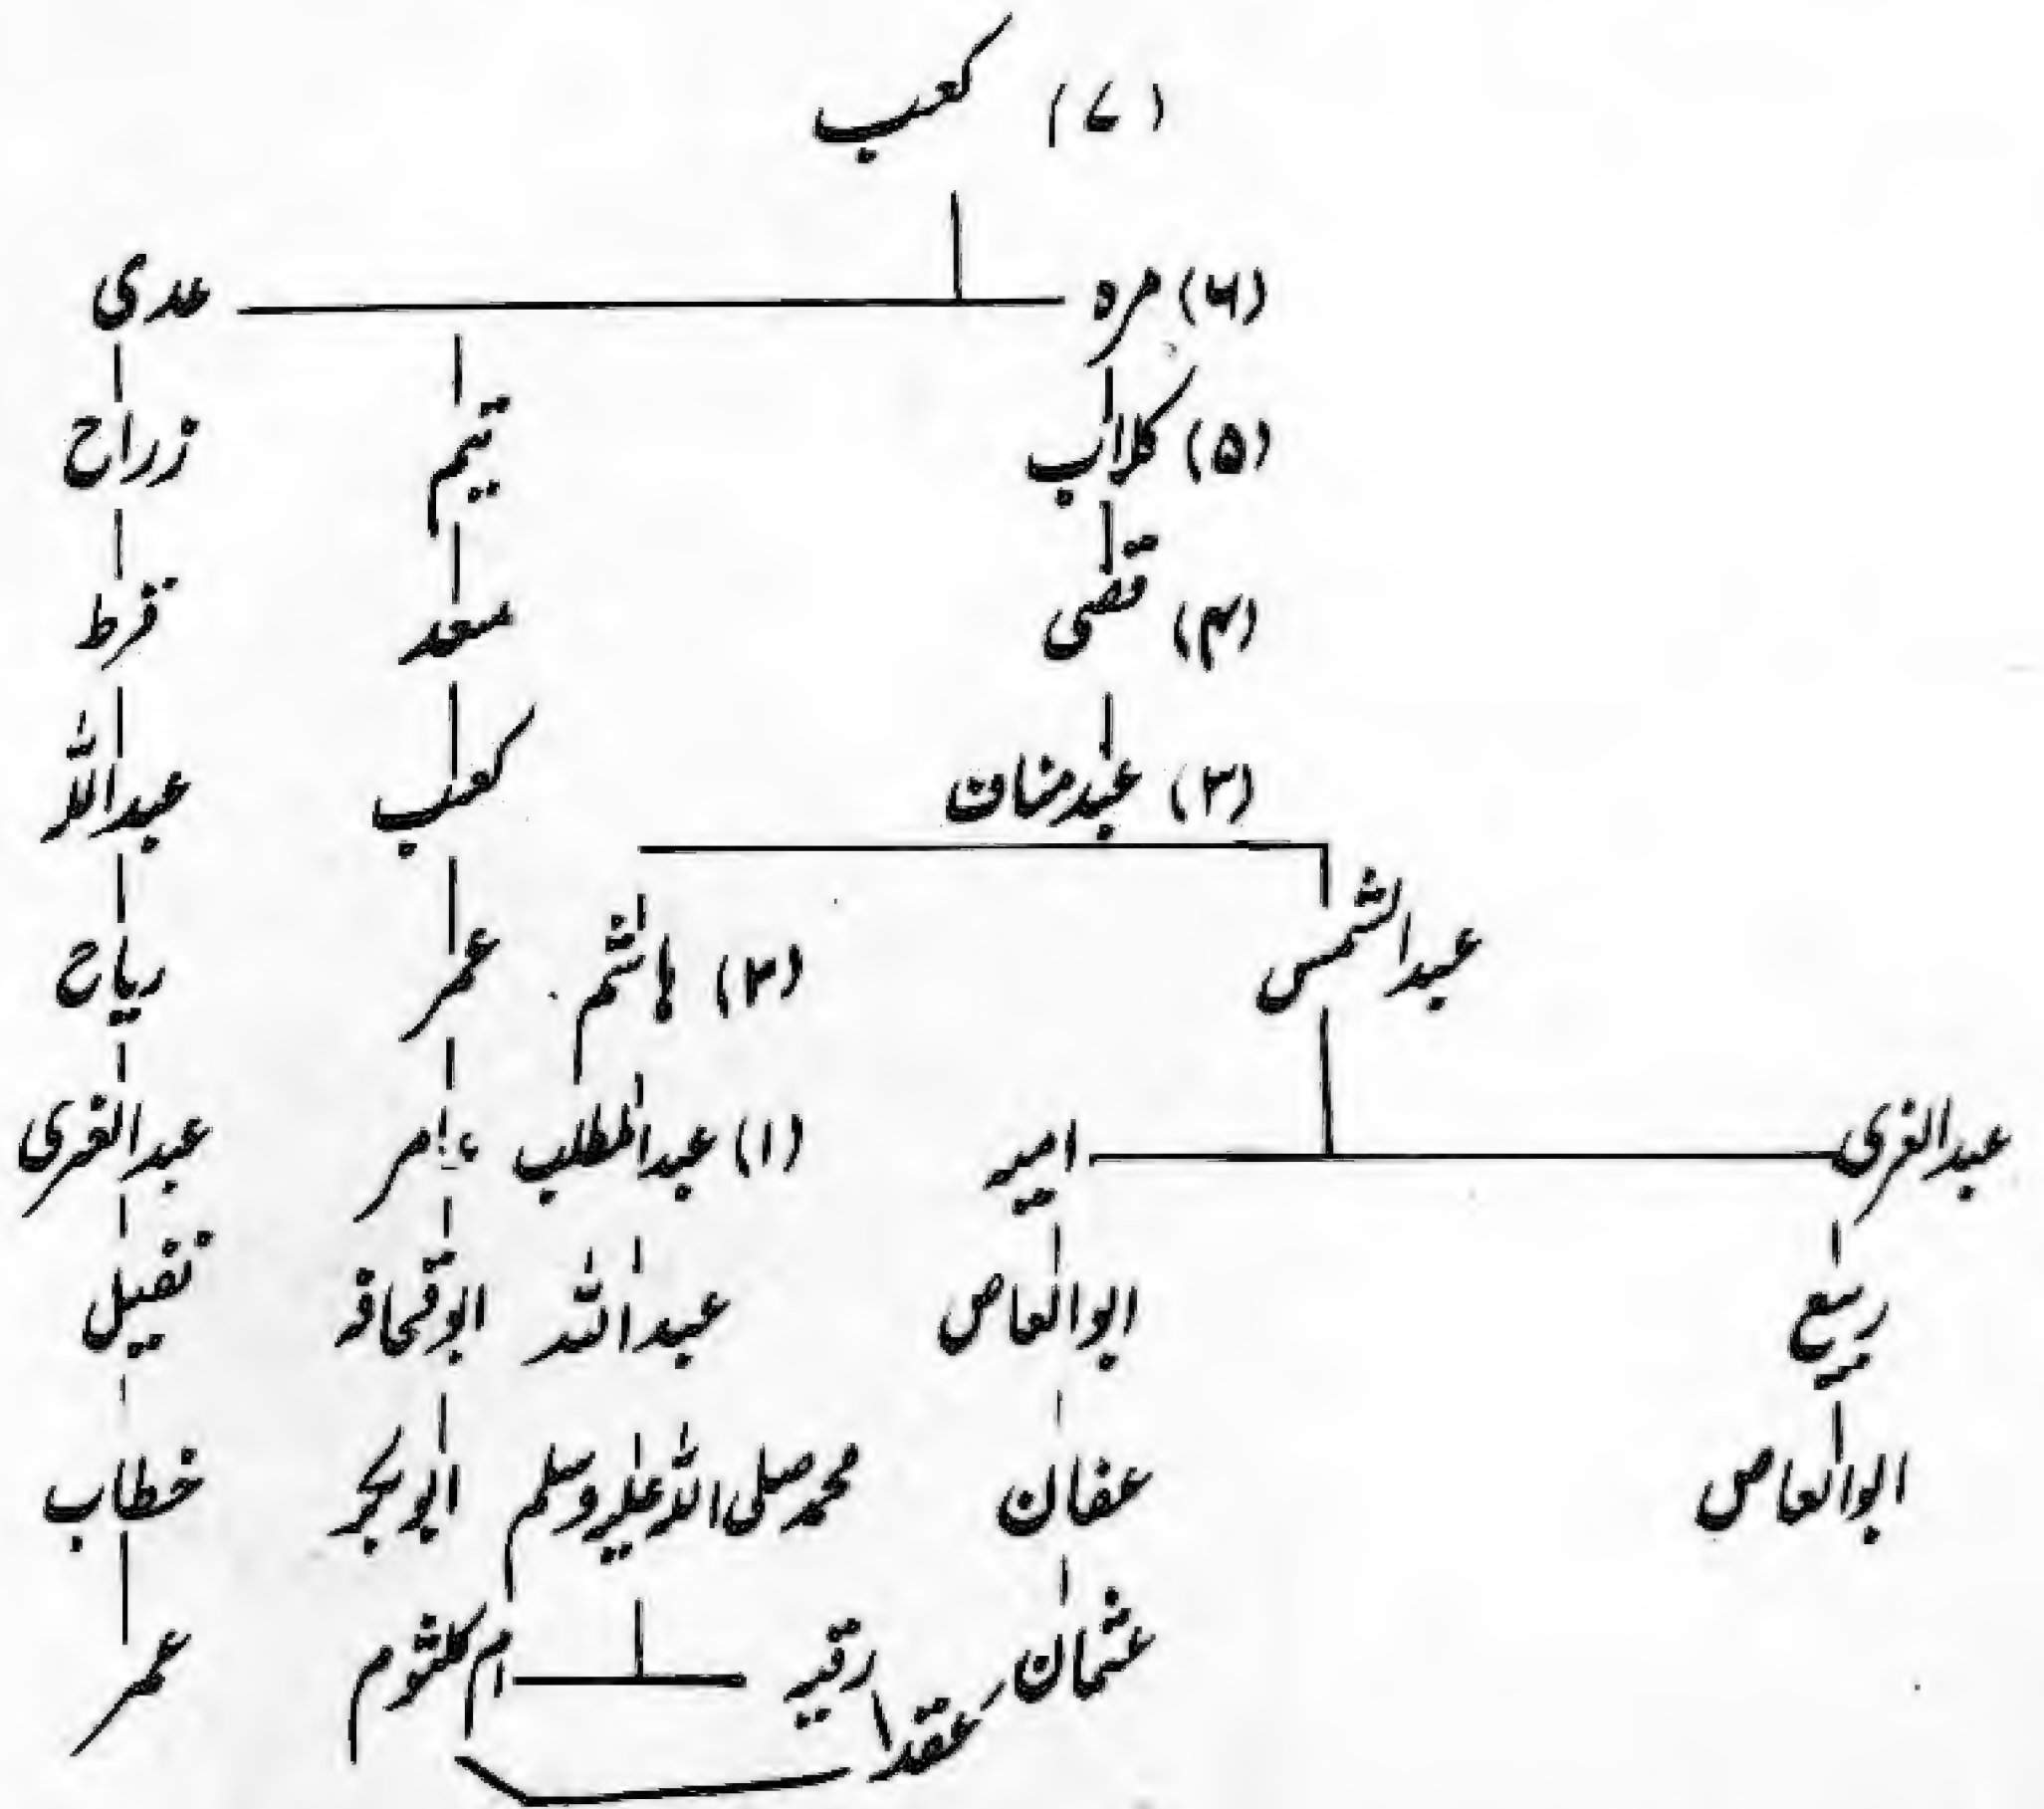 (۷) کعب
(۶) مرہ عدی
(۵) کلاب تیم زراح
(۴) قصی سعد قرط
(۳) عبدمناف کعب عبداللہ
عبدالشمس (۲) ہاشم عمر ریاح
عبدالعزی امیہ (۱) عبدالمطلب عامر عبدالعزی
ربیع ابوالعاص عبداللہ ابوقحافہ نفیل
ابوالعاص عفان محمد صلی اللہ علیہ وسلم ابوبکر خطاب
عثمان رقیہ ام کلثوم عمر
عقد